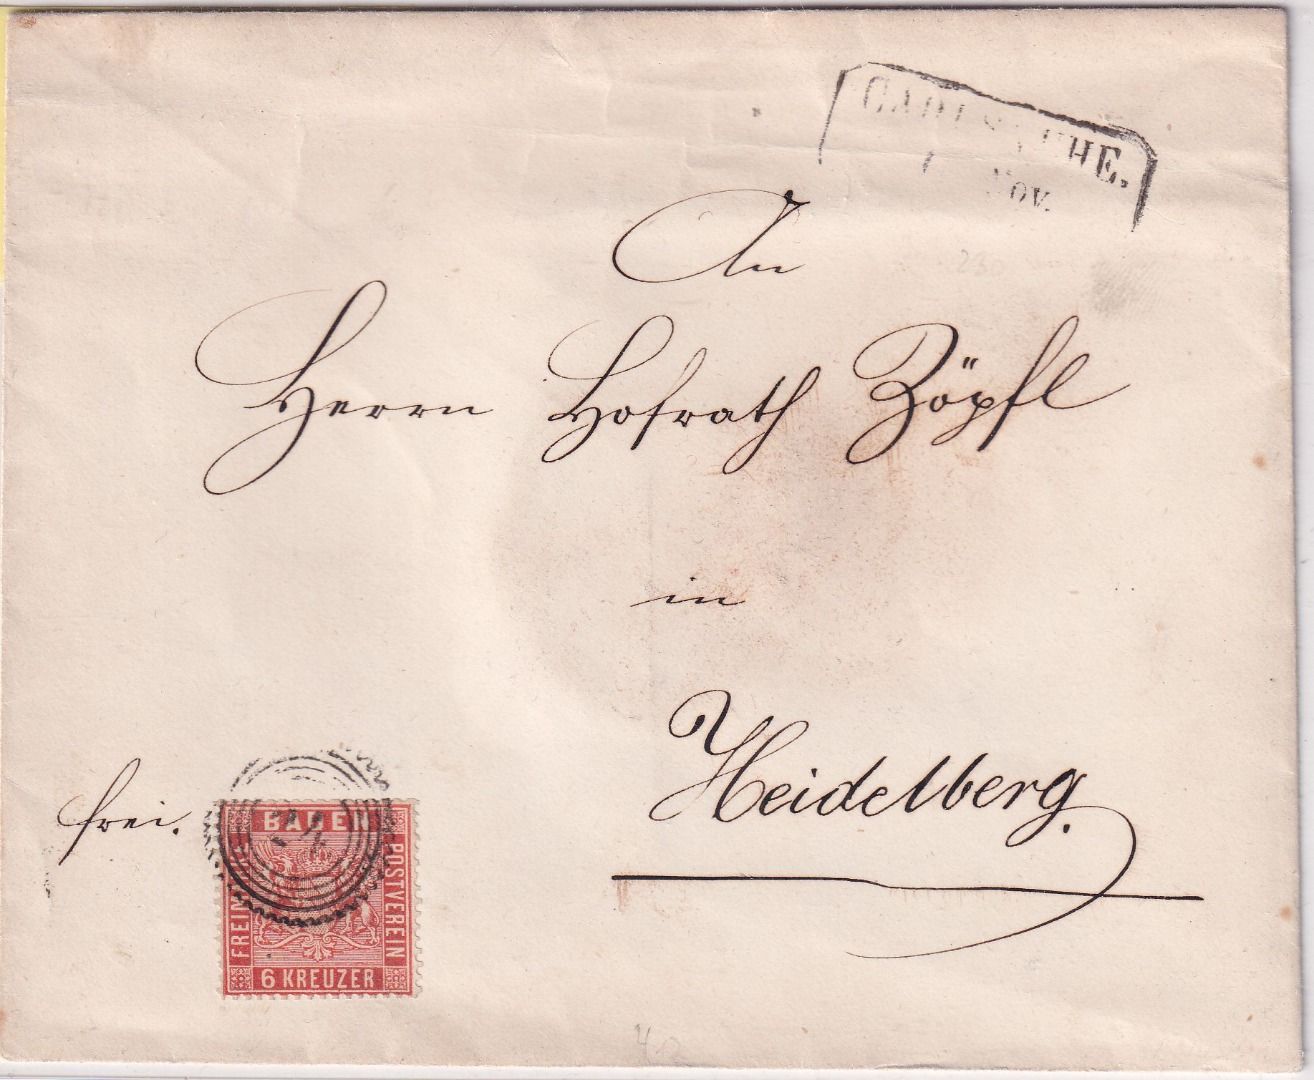 CARLSRUHE.
Nov.
An
230
Herrn Hofrath Zöpfl
in
Heidelberg.
frei.
24
BADEN
FREIMARKE
POSTVEREIN
6 KREUZER